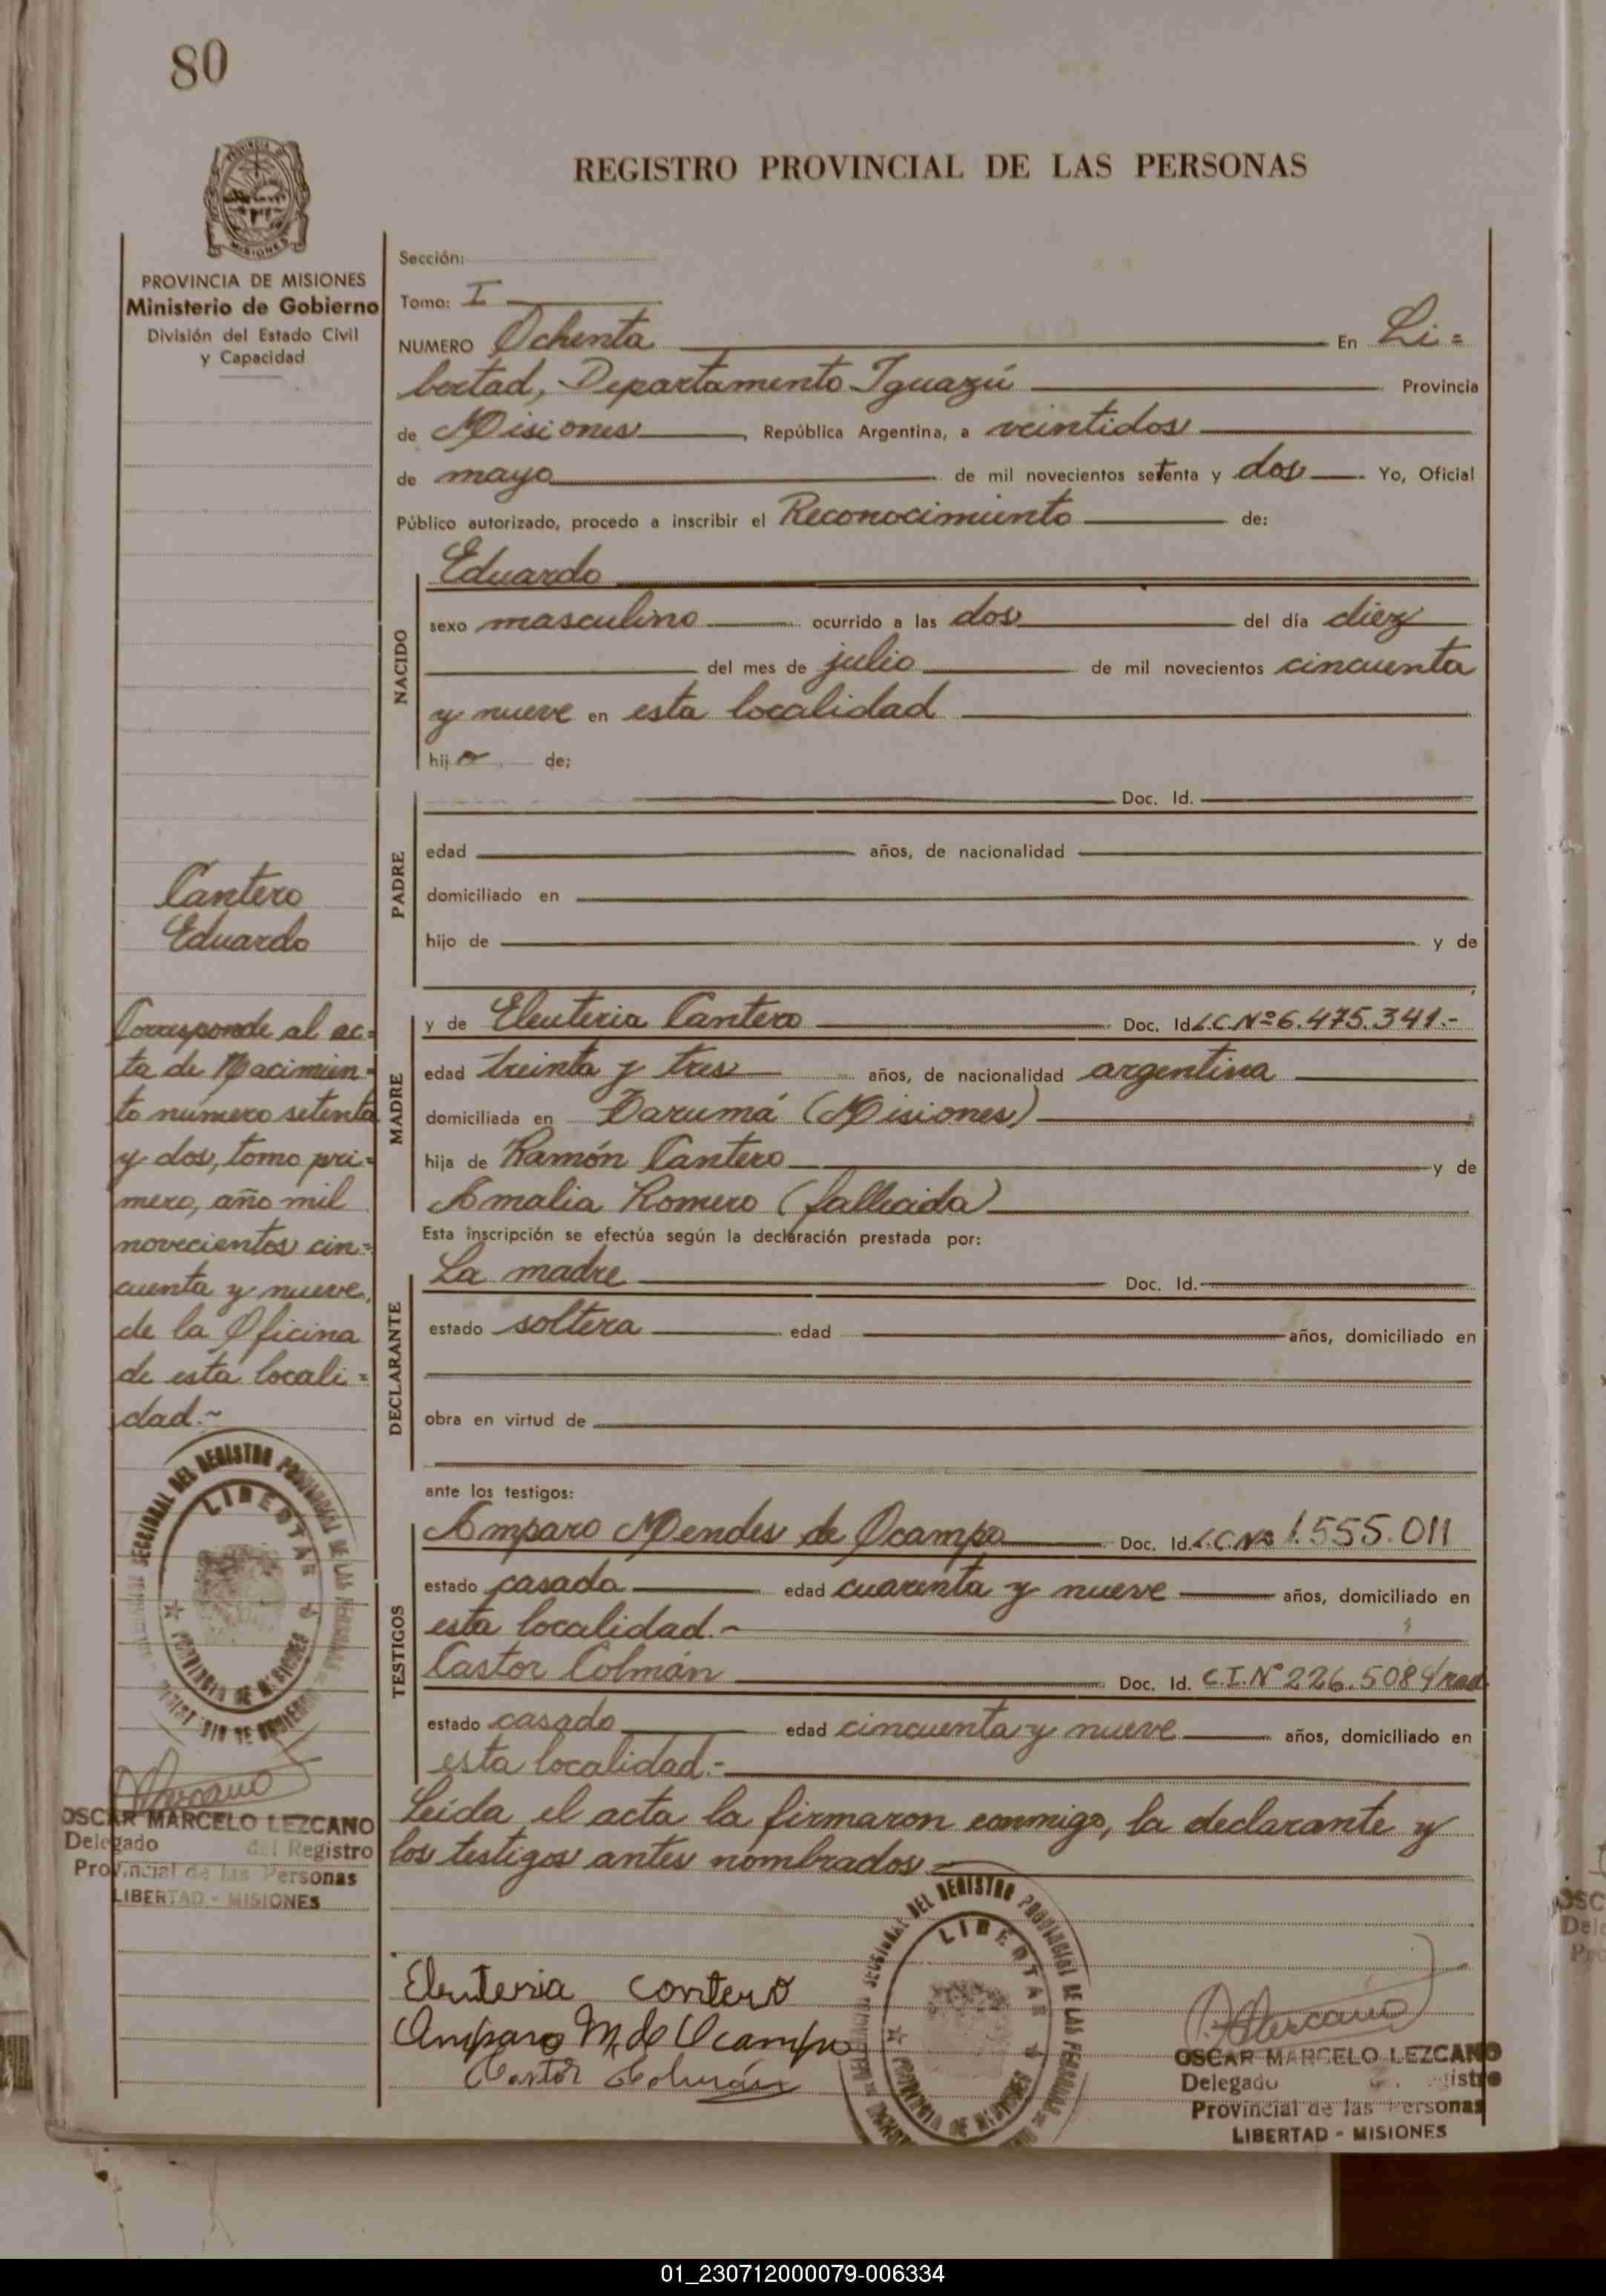 80
REGISTRO PROVINCIAL DE LAS PERSONAS
PROVINCIA DE MISIONES
Ministerio de Gobierno
División del Estado Civil
y Capacidad
Cantero
Eduardo
Corresponde al ac=
ta de Nacimien=
to número setenta
y dos, tomo pri=
mero, año mil
novecientos cin=
cuenta y nueve,
de la Oficina
de esta locali=
dad.~
SECCIONAL DEL REGISTRO PROVINCIAL DE LAS PERSONAS
LIBERTAD
PROVINCIA DE MISIONES
OSCAR MARCELO LEZCANO
Delegado del Registro
Provincial de las Personas
LIBERTAD - MISIONES
Sección:
Tomo: I
NUMERO Ochenta En Li=
bertad, Departamento Iguazú Provincia
de Misiones, República Argentina, a veintidos
de mayo de mil novecientos setenta y dos Yo, Oficial
Público autorizado, procedo a inscribir el Reconocimiento de:
NACIDO
Eduardo
sexo masculino ocurrido a las dos del día diez
del mes de julio de mil novecientos cincuenta
y nueve en esta localidad
hijo de:
PADRE
Doc. Id.
edad años, de nacionalidad
domiciliado en
hijo de y de
MADRE
y de Eleuteria Cantero Doc. Id. L.C.Nº 6.475.341.-
edad treinta y tres años, de nacionalidad argentina
domiciliada en Tarumá (Misiones)
hija de Ramón Cantero y de
Amalia Romero (fallecida)
Esta inscripción se efectúa según la declaración prestada por:
DECLARANTE
La madre Doc. Id.
estado soltera edad años, domiciliado en
obra en virtud de
ante los testigos:
TESTIGOS
Amparo Mendes de Ocampo Doc. Id. L.C.Nº 1.555.011
estado casada edad cuarenta y nueve años, domiciliado en
esta localidad.-
Castor Colmán Doc. Id. C.I.Nº 226.508
estado casado edad cincuenta y nueve años, domiciliado en
esta localidad.-
Leída el acta la firmaron conmigo, la declarante y
los testigos antes nombrados
Eleuteria contero
Amparo M. de Ocampo
Castor Colmán
SECCIONAL DEL REGISTRO PROVINCIAL DE LAS PERSONAS
LIBERTAD
PROVINCIA DE MISIONES
OSCAR MARCELO LEZCANO
Delegado
Provincial de las Personas
LIBERTAD - MISIONES
01_230712000079-006334